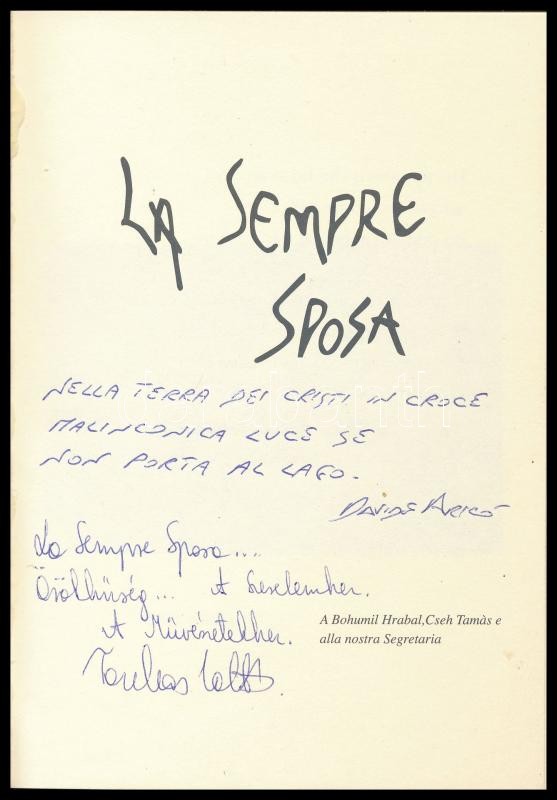 LA SEMPRE
SPOSA
NELLA TERRA DEI CRISTI IN CROCE
MALINCONICA LUCE SE
NON PORTA AL LAGO.
DAVIDE ARICÒ
La Sempre Sposa....
Örölhűség... A Szerelemhez.
A Művészetekhez.
A Bohumil Hrabal,Cseh Tamàs e
alla nostra Segretaria